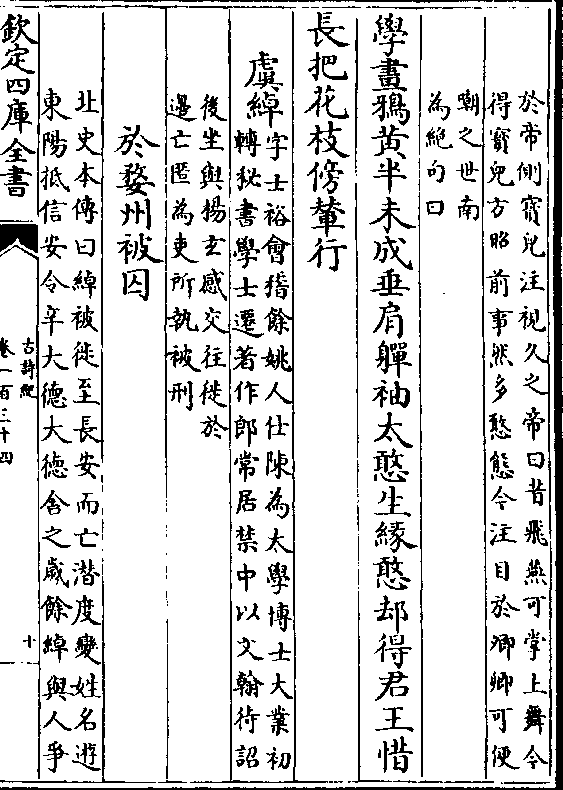 於帝側寳兒注視久之帝曰昔飛燕可掌上舞今
得寳兒方昭前事然多憨態今注目於卿卿可便
嘲之世南
為絶句曰
學畫鴉黄半未成垂肩嚲袖太憨生緣憨却得君王惜
長把花枝傍輦行
虞綽字士裕會稽餘姚人仕陳為太學博士大業初
轉秘書學士遷著作郎常居禁中以文翰待詔
後坐與楊玄感交往徙於
邊亡匿為吏所執被刑
於婺州被囚
北史本傳曰綽被徙至長安而亡潜度變姓名遊
東陽抵信安令辛大德大德舍之歲餘綽與人爭
欽定四庫全書
古詩紀
卷一百三十四
十